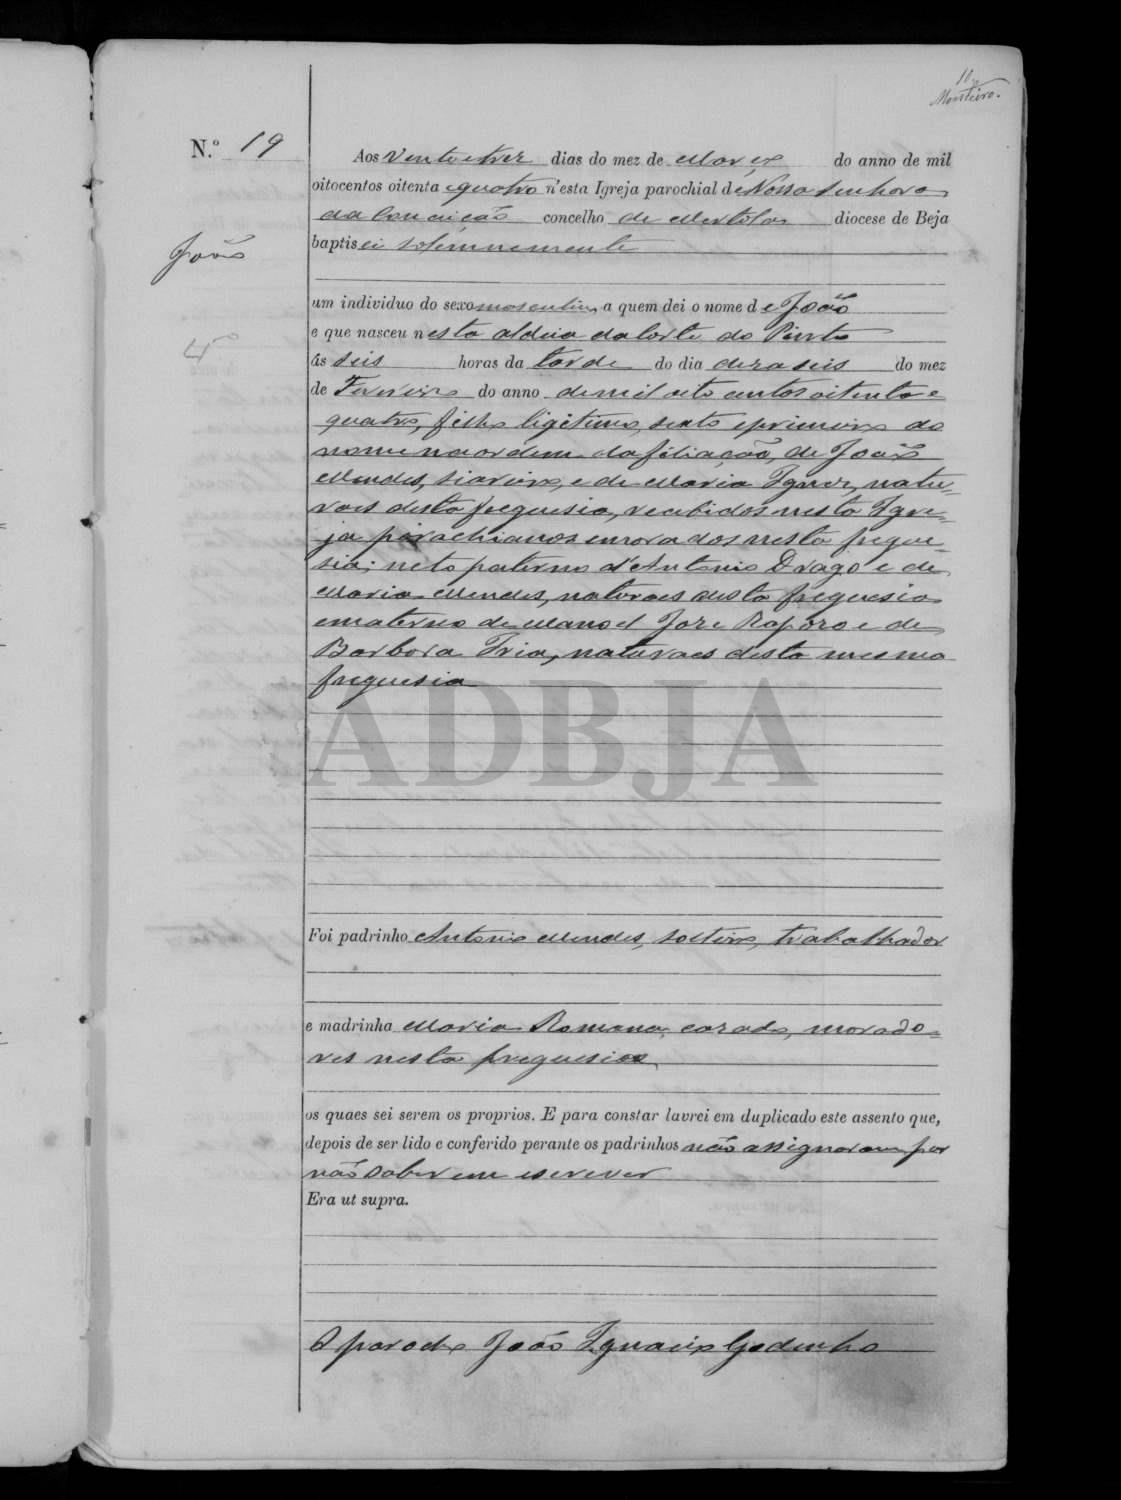 10
Monteiro.
N.º 19
Aos vinte e trez dias do mez de Março do anno de mil
oitocentos oitenta e quatro n'esta Igreja parochial de Nossa Senhora
da Conceição concelho de Mertola diocese de Beja
baptisei solemnemente
João
um individuo do sexo masculino, a quem dei o nome de João
e que nasceu nesta aldeia da Corte do Pinto
ás seis horas da tarde do dia dezaseis do mez
de Fevereiro do anno de mil oito centos oitenta e
quatro, filho ligitimo, sexto e primeiro do
nome na ordem da filiação, de João
Mendes, siareiro, e de Maria Ignez, natu-
raes desta freguesia, recebidos nesta Igre-
ja parochianos e moradores nesta fregue-
sia; neto paterno d'Antonio Drago e de
Maria Mendes, naturaes desta freguesia
e materno de Manoel Joze Rapozo e de
Barbora Fria, naturaes desta mesma
freguesia
ADBJA
Foi padrinho Antonio Mendes, solteiro, trabalhador
e madrinha Maria Romana, cazada, morado-
res nesta freguesia
os quaes sei serem os proprios. E para constar lavrei em duplicado este assento que,
depois de ser lido e conferido perante os padrinhos não assignaram por
não saberem escrever
Era ut supra.
O parocho João Ignacio Godinho